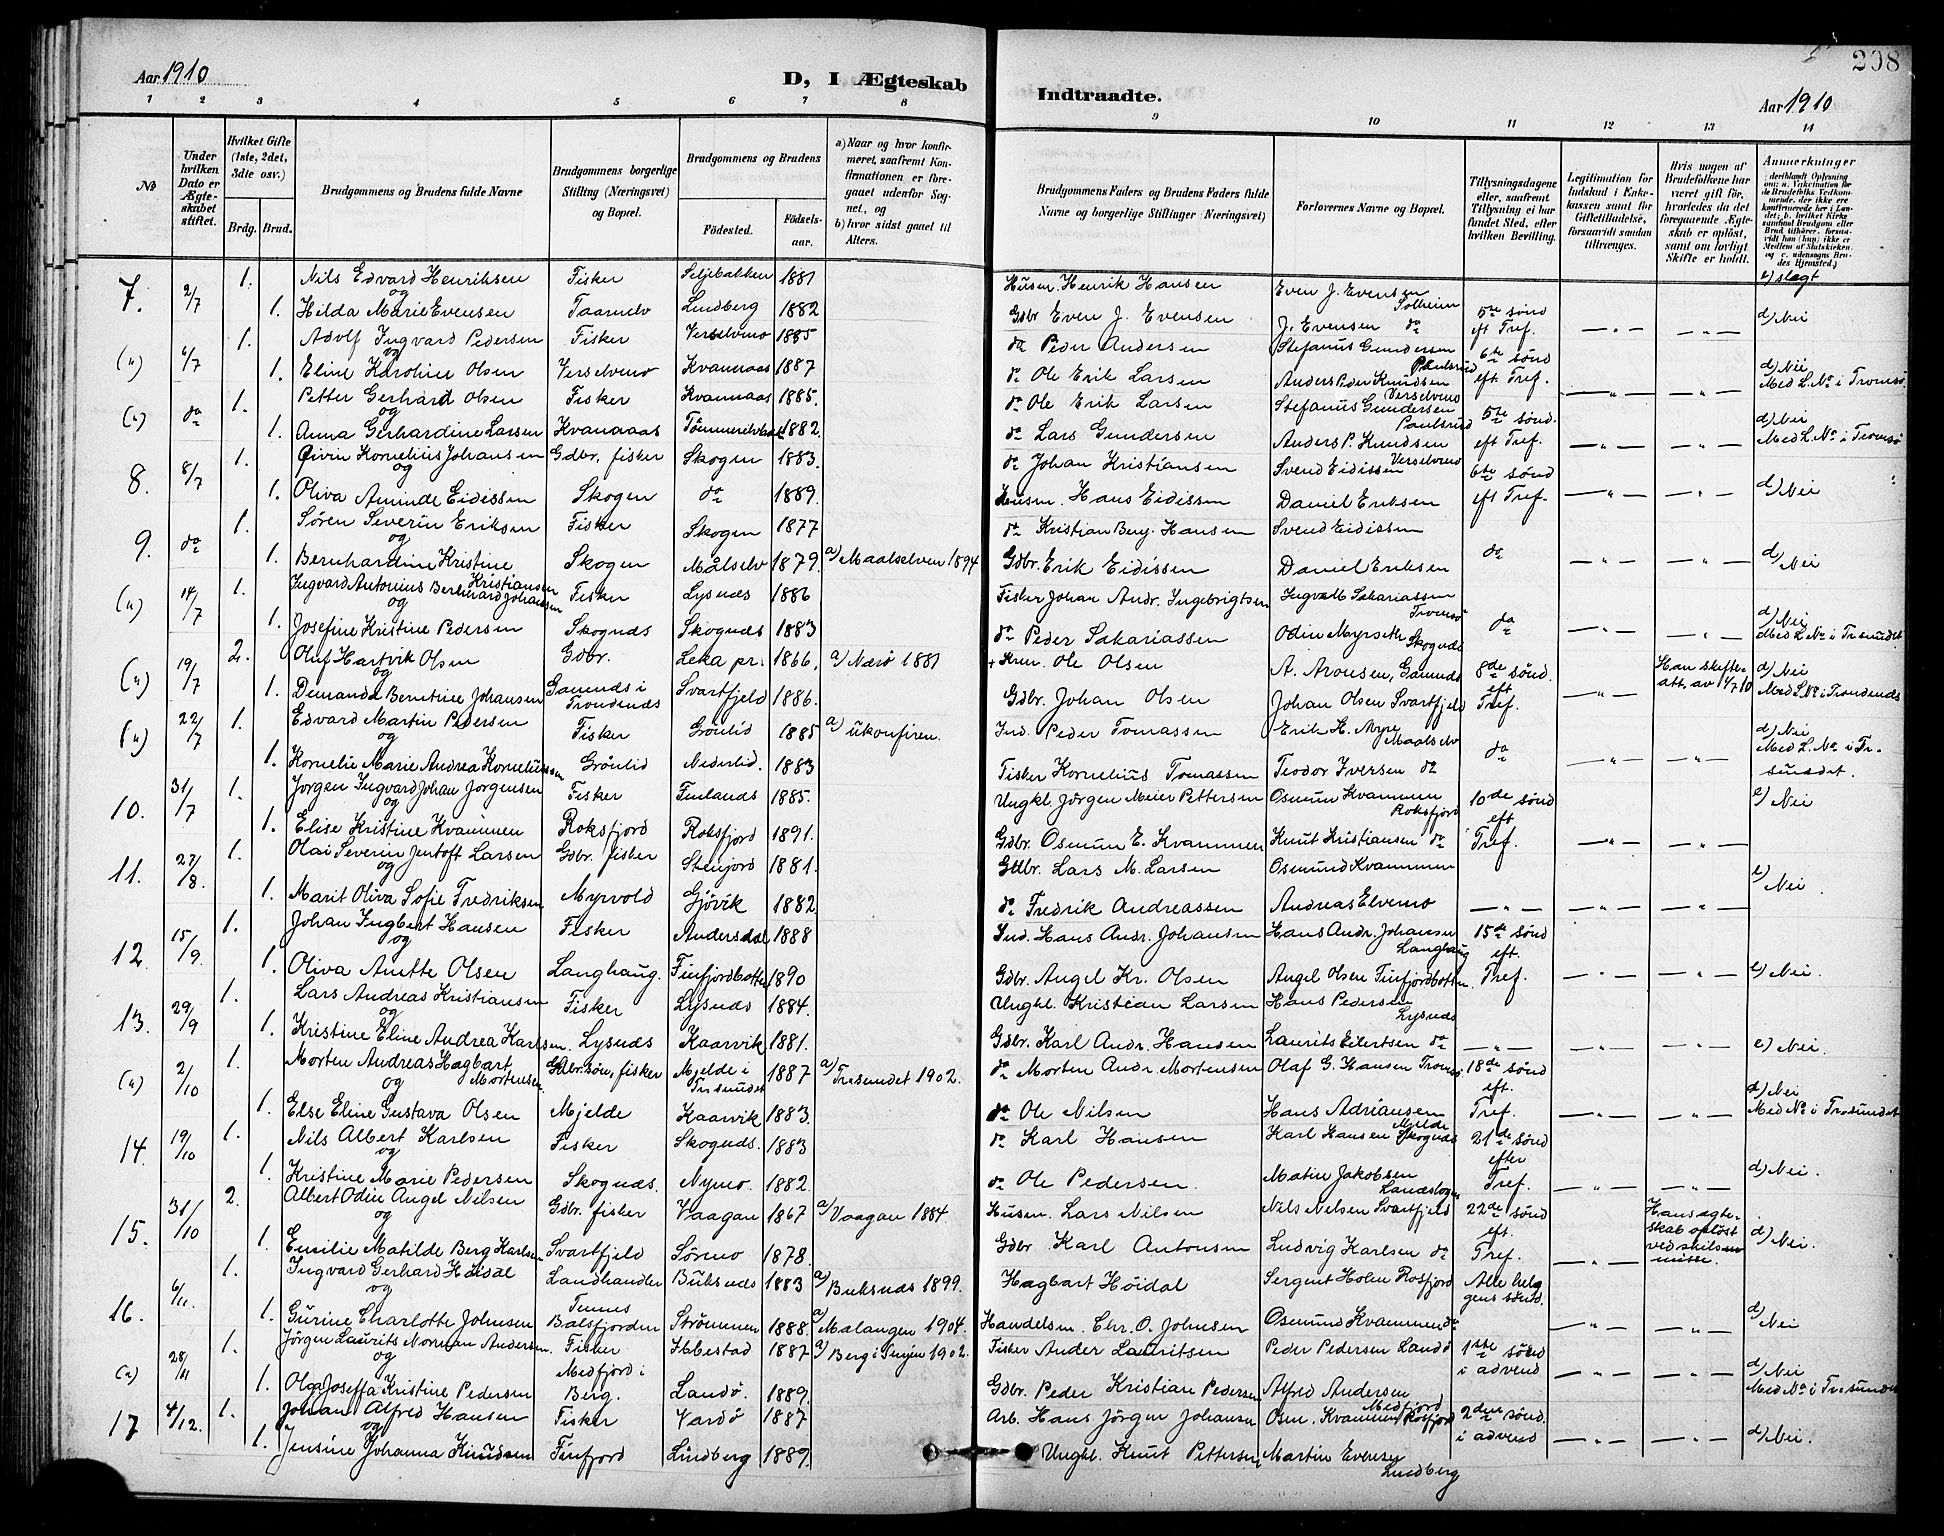 Aar 1910
D, I Ægteskab
Indtraadte.
208
Aar 1910
1 2 3 4 5 6 7 8 9 10 11 12 13 14
No
Under hvilken Dato er Ægteskabet stiftet.
Hvilket Gifte (1ste, 2det, 3die osv.)
Brdg. Brud.
Brudgommens og Brudens fulde Navne
Brudgommens borgerlige Stilling (Næringsvei) og Bopæl.
Brudgommens og Brudens
Fødested.
Fødselsaar.
a) Naar og hvor konfirmeret, saafremt Konfirmationen er foregaaet udenfor Sognet, og
b) hvor sidst gaaet til Alters.
Brudgommens Faders og Brudens Faders fulde Navne og borgerlige Stillinger (Næringsvei)
Forlovernes Navne og Bopæl.
Tillysningsdagene eller, saafremt Tillysning ei har fundet Sted, efter hvilken Bevilling.
Legitimation for Indskud i Enkekassen samt for Giftetilladelse, forsaavidt saadan tiltrænges.
Hvis nogen af Brudefolkene har været gift før, hvorledes da det foregaaende Ægteskab er opløst, samt om lovligt Skifte er holdt.
Anmærkninger
e) slegt
7. 2/7 1. Nils Edvard Henriksen Fisker Seljebakken 1881 Husm. Henrik Hansen Even J. Evensen Solheim
og
1. Hilda Marie Evensen Taarnelv Lundberg 1882 Gdbr Even J. Evensen J. Evensen do 5te sønd eft Tref. d) Nei
(u) 6/7 1. Adolf Ingvard Pedersen Fisker Verselvmo 1885 do Peder Andersen Stefanus Gundersen Paulsrud
og
1. Eline Karoline Olsen Verselvmo Kvannaas 1887 do Ole Erik Larsen Anders Peder Knudsen Verselvmo 6te sønd eft. Tref. d) Nei Med L. No i Tromsø
(u) do 1. Petter Gerhard Olsen Fisker Kvannaas 1885. do Ole Erik Larsen Stefanus Gundersen Paulsrud
og
1. Anna Gerhardine Larsen Kvanaaas 1882. do Lars Gundersen Anders P. Knudsen Verselvmo 5te sønd. eft Tref. d) Nei Med L. No i Tromsø
8. 8/7 1. Eivin Kornelius Johansen Gdbr. fisker Skogen 1883. do Johan Kristiansen Svend Eidissen
og
1. Oliva Amunde Eidissen Skogen do 1889. Husm. Hans Eidissen Daniel Eriksen 6te sønd eft Tref. d) Nei
9. do 1. Søren Severin Eriksen Fisker Skogen 1877 do Kristian Benj. Hansen Svend Eidissen
og
1. Bernhardine Kristine Kristiansen Skogen Målselv 1879. a) Maalselven 1894 Gdbr. Erik Eidissen Daniel Eriksen do d) Nei
(u) 14/7 1. Ingvard Antonius Bernhard Johansen Fisker Lysnæs 1886 Fisker Johan Andr. Ingebrigtsen Ingvald Sakariassen Tromsø
og
1. Josefine Kristine Pedersen Skognæs Skognæs 1883 do Peder Sakariassen Odin Myrseth Skognæs do d) Nei Med L. No i Trosundet
(u) 19/7 2. Oluf Hartvik Olsen Gdbr. Leka pr. 1866. a) Nærø 1881 Ole Olsen A. Aronsen, Gamnæs 8de sønd. eft Tref. Han skifteatt. av 1/7 10
og
1. Berntine Johansen Gamnæs i Trondenæs Svartfjeld 1886. Gdbr. Johan Olsen Johan Olsen Svartfjeld d) Nei Med L. No i Trondenæs
(u) 22/7 1. Edvard Martin Pedersen Fisker Grönlid 1885 a) ukonfirm. Ind. Peder Tomassen Erik H. Myre Maalselv
og
1. Kornelie Marie Andrea Korneliussen Grönlid Nederlid. 1883 Fisker Kornelius Tomassen Teodor Iversen do do d) Nei Med L. No i Trsundet.
10. 31/7 1. Jørgen Ingvard Johan Jørgensen Fisker Finlands 1885. Ungkl. Jørgen Meier Pettersen Osmun Kvammen Roksfjord
og
1. Elise Kristine Kvammen Roksfjord Roksfjord 1891. Gdbr. Osmun E. Kvammen Knut Kristiansen do 10de sønd eft Tref. e) Nei
11. 27/8. 1. Olai Severin Jentoft Larsen Gdbr. fisker Stenjord 1881. Gdbr. Lars M. Larsen Osmund Kvammen
og
1. Marit Oliva Sofie Fredriksen Myrvold Gjövik 1882. do Fredrik Andreassen Andreas Elvemo e) Nei
12. 15/9. 1. Johan Ingbert Hansen Fisker Andersdal 1888 Ind. Hans Andr. Johansen Hans Andr. Johansen Langhaug
og
1. Oliva Anette Olsen Langhaug. Finfjordbotten 1890 Gdbr. Angel Kr. Olsen Angel Olsen Finfjordbotten 15de sønd eft. Tref. e) Nei.
13. 29/9 1. Lars Andreas Kristiansen Fisker Lysnæs 1884. Ungkl. Kristian Larsen Hans Pedersen Lysnæs
og
1. Kristine Eline Andrea Karlsen. Lysnæs Kaarvik 1881. Gdbr. Karl Andr. Hansen Laurits Eilertsen do e) Nei.
(u) 2/10 1. Morten Andreas Hagbart Mortensen Gdbr.søn, fisker Mjelde i Trsundet 1887 a) Trosundet 1902. do Morten Andr Mortensen Olaf G. Hansen Tromsø
og
1. Else Eline Gustava Olsen Mjelde Kaarvik 1883. do Ole Nilsen Hans Adriansen Mjelde 18de sønd eft. Tref. d) Nei Med No i Trosundet
14. 19/10 1. Nils Albert Karlsen Fisker Skognæs. 1883 do Karl Hansen Karl Hansen Skognæs
og
1. Kristine Marie Pedersen Skognæs. Nymo 1882. do Ole Pedersen. Jakobsen 21de sønd efter Tref. d) Nei.
15. 31/10 2. Albert Odin Angel Nilsen Gdbr. fisker Vaagan 1867 a) Vaagan 1884. Husm. Lars Nilsen Nils Nilsen Svartfjeld 22de sønd eft. Tref. Hans ægteskab opløst ved skilsmisse.
og
1. Emilie Matilde Berg Karlsen Svartfjeld Sørmo 1878. Gdbr. Karl Antonsen Ludvig Karlsen do d) Nei.
16. 6/11. 1. Ingvard Gerhard Höidal Landhandler Buksnæs 1883 a) Buksnæs 1899. Hagbart Höidal Sergent Holm Rosfjord Alle helgens sønd.
og
1. Gurine Charlotte Johnsen Tennes Balsfjorden Strömmen 1888. a) Malangen 1904. Handelsm. Chr. O. Johnsen Osmund Kvammen do d) Nei
(u) 28/11 1. Jörgen Laurits Norman Andersen. Fisker Ibbestad 1887 a) Berg i Senjen 1902. Fisker Ander Lauritsen Peder Pedersen Landö 1ste sønd i advend
og
1. Olga Joseffa Kristine Pedersen Medfjord i Berg. Landö. 1889. Gdbr. Peder Kristian Pedersen Alfred Andersen Medfjord d) Nei Med No i Trosundet
17 4/12. 1. Johan Alfred Hansen Fisker Vardö 1887 Arb. Hans Jörgen Johansen Osm. Kvammen Rosfjord 2den sønd. i advend
og
1. Jensine Johanna Knudsen Finfjord Lundberg 1889. Ungkl. Knut Pettersen Martin Evensen Lundberg d) Nei.